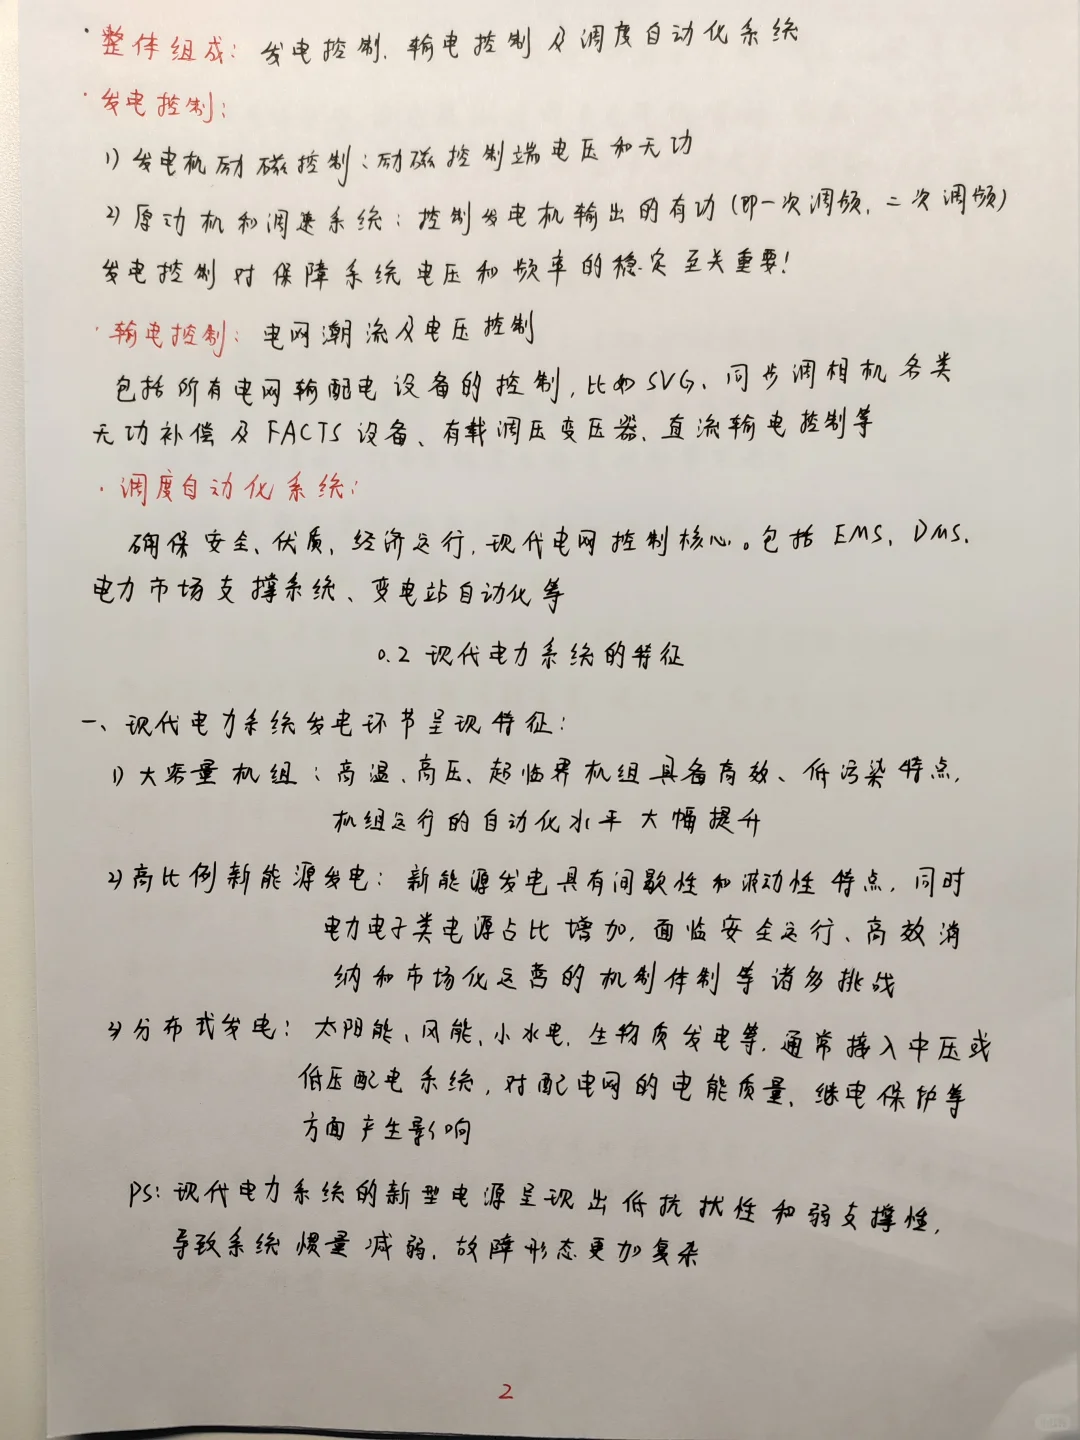 · 整体组成：发电控制、输电控制及调度自动化系统
· 发电控制：
1) 发电机励磁控制：励磁控制端电压和无功
2) 原动机和调速系统：控制发电机输出的有功（即一次调频、二次调频）
发电控制对保障系统电压和频率的稳定至关重要！
· 输电控制：电网潮流及电压控制
包括所有电网输配电设备的控制，比如SVG、同步调相机各类
无功补偿及FACTS设备、有载调压变压器、直流输电控制等
· 调度自动化系统：
确保安全、优质、经济运行，现代电网控制核心。包括EMS、DMS、
电力市场支撑系统、变电站自动化等
0.2 现代电力系统的特征
一、现代电力系统发电环节呈现特征：
1) 大容量机组：高温、高压、超临界机组具备高效、低污染特点，
机组运行的自动化水平大幅提升
2) 高比例新能源发电：新能源发电具有间歇性和波动性特点，同时
电力电子类电源占比增加，面临安全运行、高效消
纳和市场化运营的机制体制等诸多挑战
3) 分布式发电：太阳能、风能、小水电、生物质发电等，通常接入中压或
低压配电系统，对配电网的电能质量、继电保护等
方面产生影响
PS：现代电力系统的新型电源呈现出低抗扰性和弱支撑性，
导致系统惯量减弱，故障形态更加复杂
2